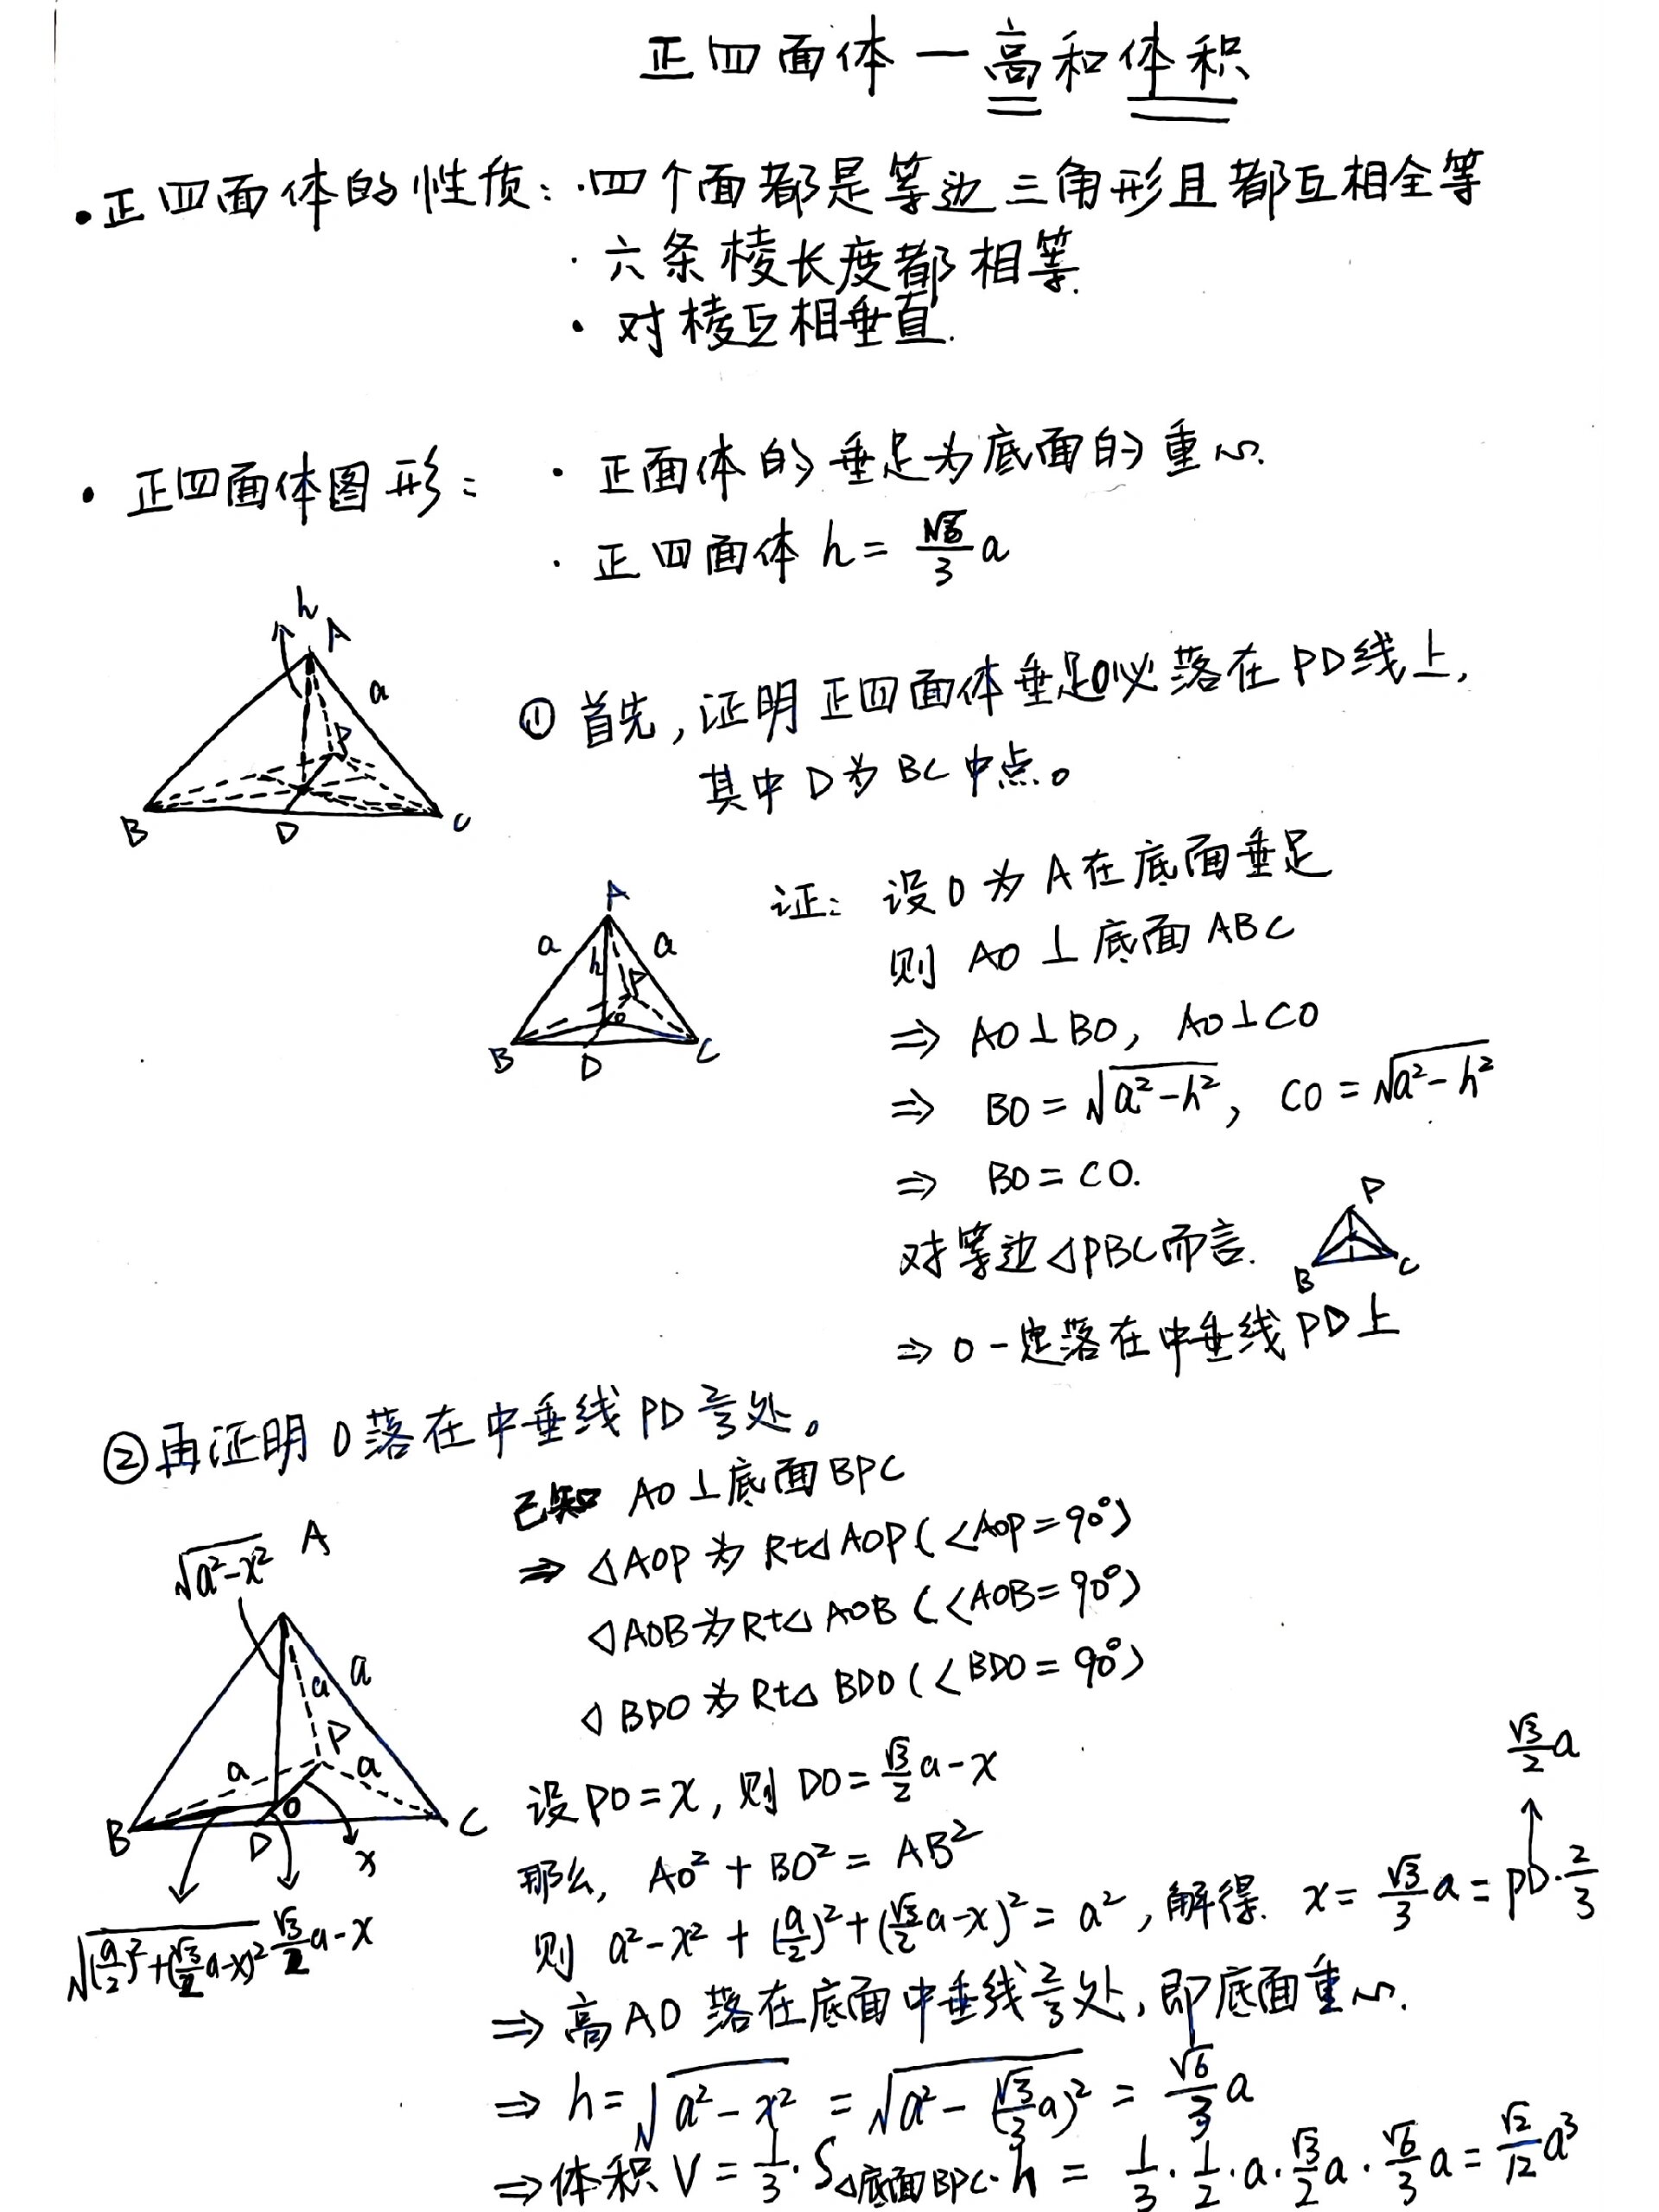 正四面体一高和体积
• 正四面体的性质: · 四个面都是等边三角形且都互相全等
· 六条棱长度都相等.
· 对棱互相垂直.
• 正四面体图形: · 正面体的垂足为底面的重心.
· 正四面体 h = √6/3 a
h
A
a
P
B D C
① 首先, 证明正四面体垂足O必落在PD线上,
其中D为BC中点。
A
a h a
P
O
B D C
证: 设O为A在底面垂足
则 AO⊥底面ABC
⇒ AO⊥BO, AO⊥CO
⇒ BO=√(a²-h²), CO=√(a²-h²)
⇒ BO=CO.
对等边△PBC而言.
P
B C
⇒ O一定落在中垂线PD上
②再证明O落在中垂线PD 2/3处。
已知 AO⊥底面BPC
⇒ △AOP为Rt△AOP(∠AOP=90°)
△AOB为Rt△AOB(∠AOB=90°)
△BDO为Rt△BDO(∠BDO=90°)
√(a²-x²) A
a a
P
a a
O
B D C
x
√((a/2)²+(√3/2 a-x)²) √3/2 a-x
设PO=x, 则DO=√3/2 a-x
那么, AO²+BO²=AB²
√3/2 a
则 a²-x²+(a/2)²+(√3/2 a-x)²=a², 解得. x=√3/3 a=PD·2/3
⇒ 高AO落在底面中垂线2/3处, 即底面重心.
⇒ h=√(a²-x²)=√(a²-(√3/3 a)²)=√6/3 a
⇒ 体积V=1/3·S△底面BPC·h=1/3·1/2·a·√3/2 a·√6/3 a=√2/12 a³